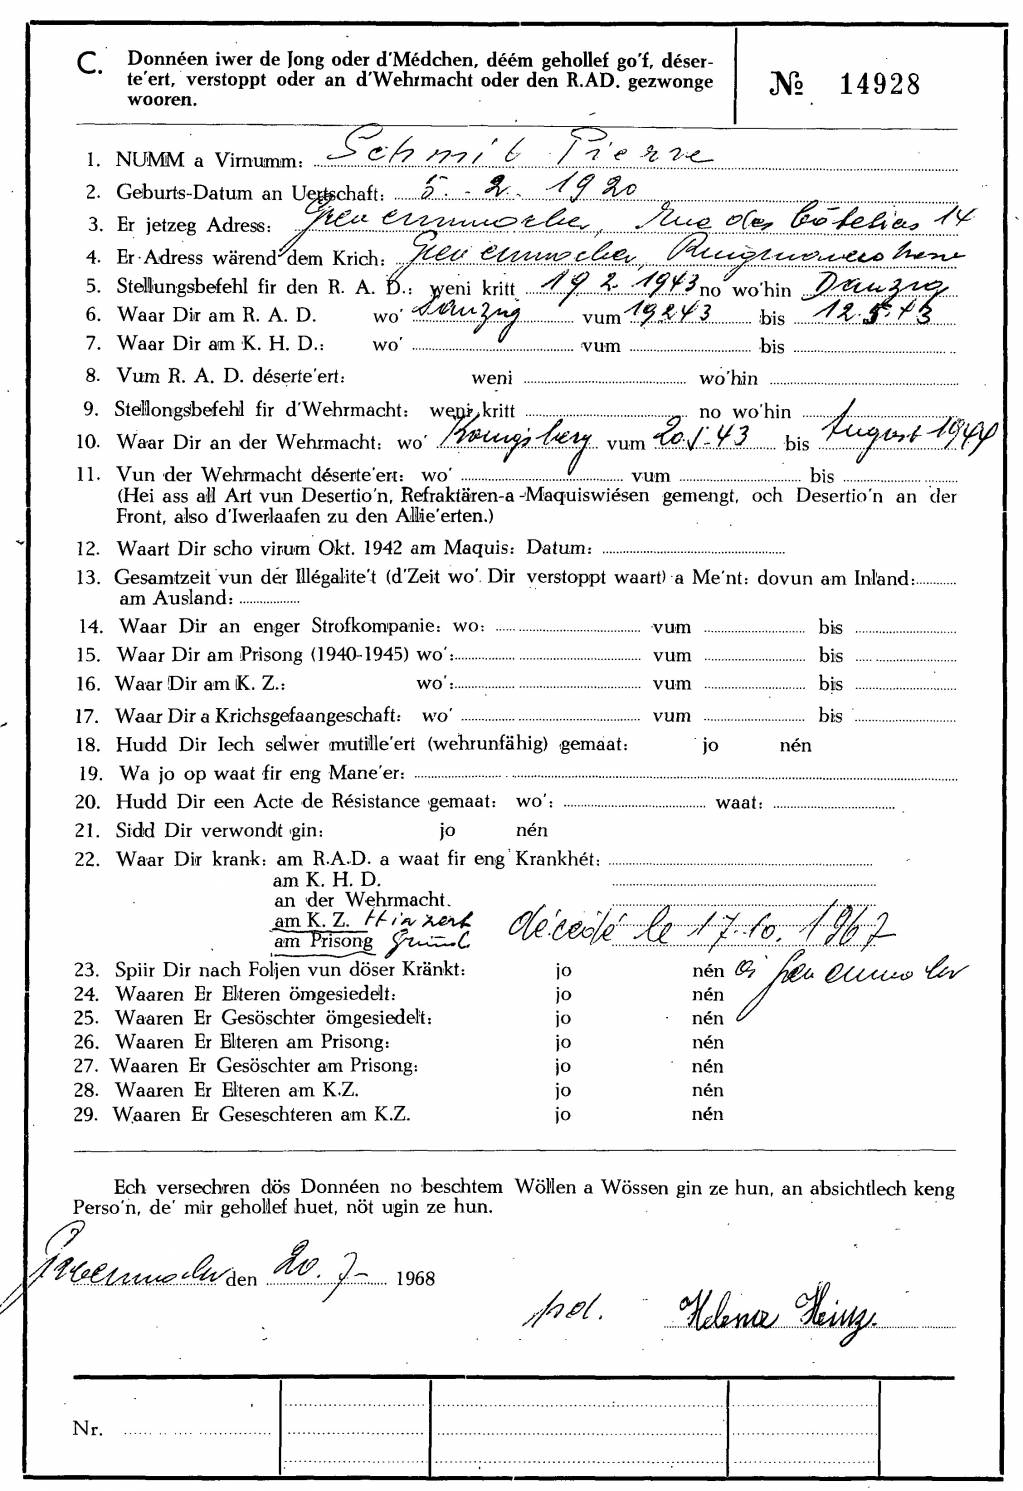 C. Donnéen iwer de Jong oder d'Médchen, déém gehollef go'f, déser-
te'ert, verstoppt oder an d'Wehrmacht oder den R.AD. gezwonge
wooren.
№ 14928
1. NUMM a Virnumm: Schmit Pierre
2. Geburts-Datum an Uertschaft: 5. - 2. - 1920
3. Er jetzeg Adress: Grevenmacher, Rue des Cötelias 14
4. Er Adress wärend dem Krich: Grevenmacher,
5. Stellungsbefehl fir den R. A. D.: weni kritt 19 2 1943 no wo'hin Danzig
6. Waar Dir am R. A. D. wo' Danzig vum 19243 bis 12.5.43
7. Waar Dir am K. H. D.: wo' vum bis
8. Vum R. A. D. déserte'ert: weni wo'hin
9. Stellongsbefehl fir d'Wehrmacht: weni kritt no wo'hin
10. Waar Dir an der Wehrmacht: wo' Königsberg vum 20.5.43 bis August 1944
11. Vun der Wehrmacht déserte'ert: wo' vum bis
(Hei ass all Art vun Desertio'n, Refraktären-a-Maquiswiésen gemengt, och Desertio'n an der
Front, also d'Iwerlaafen zu den Allie'erten.)
12. Waart Dir scho virum Okt. 1942 am Maquis: Datum:
13. Gesamtzeit vun der Illégalite't (d'Zeit wo' Dir verstoppt waart) a Me'nt: dovun am Inland:
am Ausland:
14. Waar Dir an enger Strofkompanie: wo: vum bis
15. Waar Dir am Prisong (1940-1945) wo': vum bis
16. Waar Dir am K. Z.: wo': vum bis
17. Waar Dir a Krichsgefaangeschaft: wo' vum bis
18. Hudd Dir Iech selwer mutille'ert (wehrunfähig) gemaat: jo nén
19. Wa jo op waat fir eng Mane'er:
20. Hudd Dir een Acte de Résistance gemaat: wo': waat:
21. Sidd Dir verwondt gin: jo nén
22. Waar Dir krank: am R.A.D. a waat fir eng Krankhét:
am K. H. D.
an der Wehrmacht.
am K. Z. Hinzert décédé le 17.10.1967
am Prisong Grund
23. Spiir Dir nach Foljen vun döser Kränkt: jo nén à Grevenmacher
24. Waaren Er Elteren ömgesiedelt: jo nén
25. Waaren Er Gesöschter ömgesiedelt: jo nén
26. Waaren Er Elteren am Prisong: jo nén
27. Waaren Er Gesöschter am Prisong: jo nén
28. Waaren Er Elteren am K.Z. jo nén
29. Waaren Er Geseschteren am K.Z. jo nén
Ech versechren dös Donnéen no beschtem Wöllen a Wössen gin ze hun, an absichtlech keng
Perso'n, de' mir gehollef huet, nöt ugin ze hun.
Grevenmacher den 20. 7- 1968
Helene Heinz.
Nr.